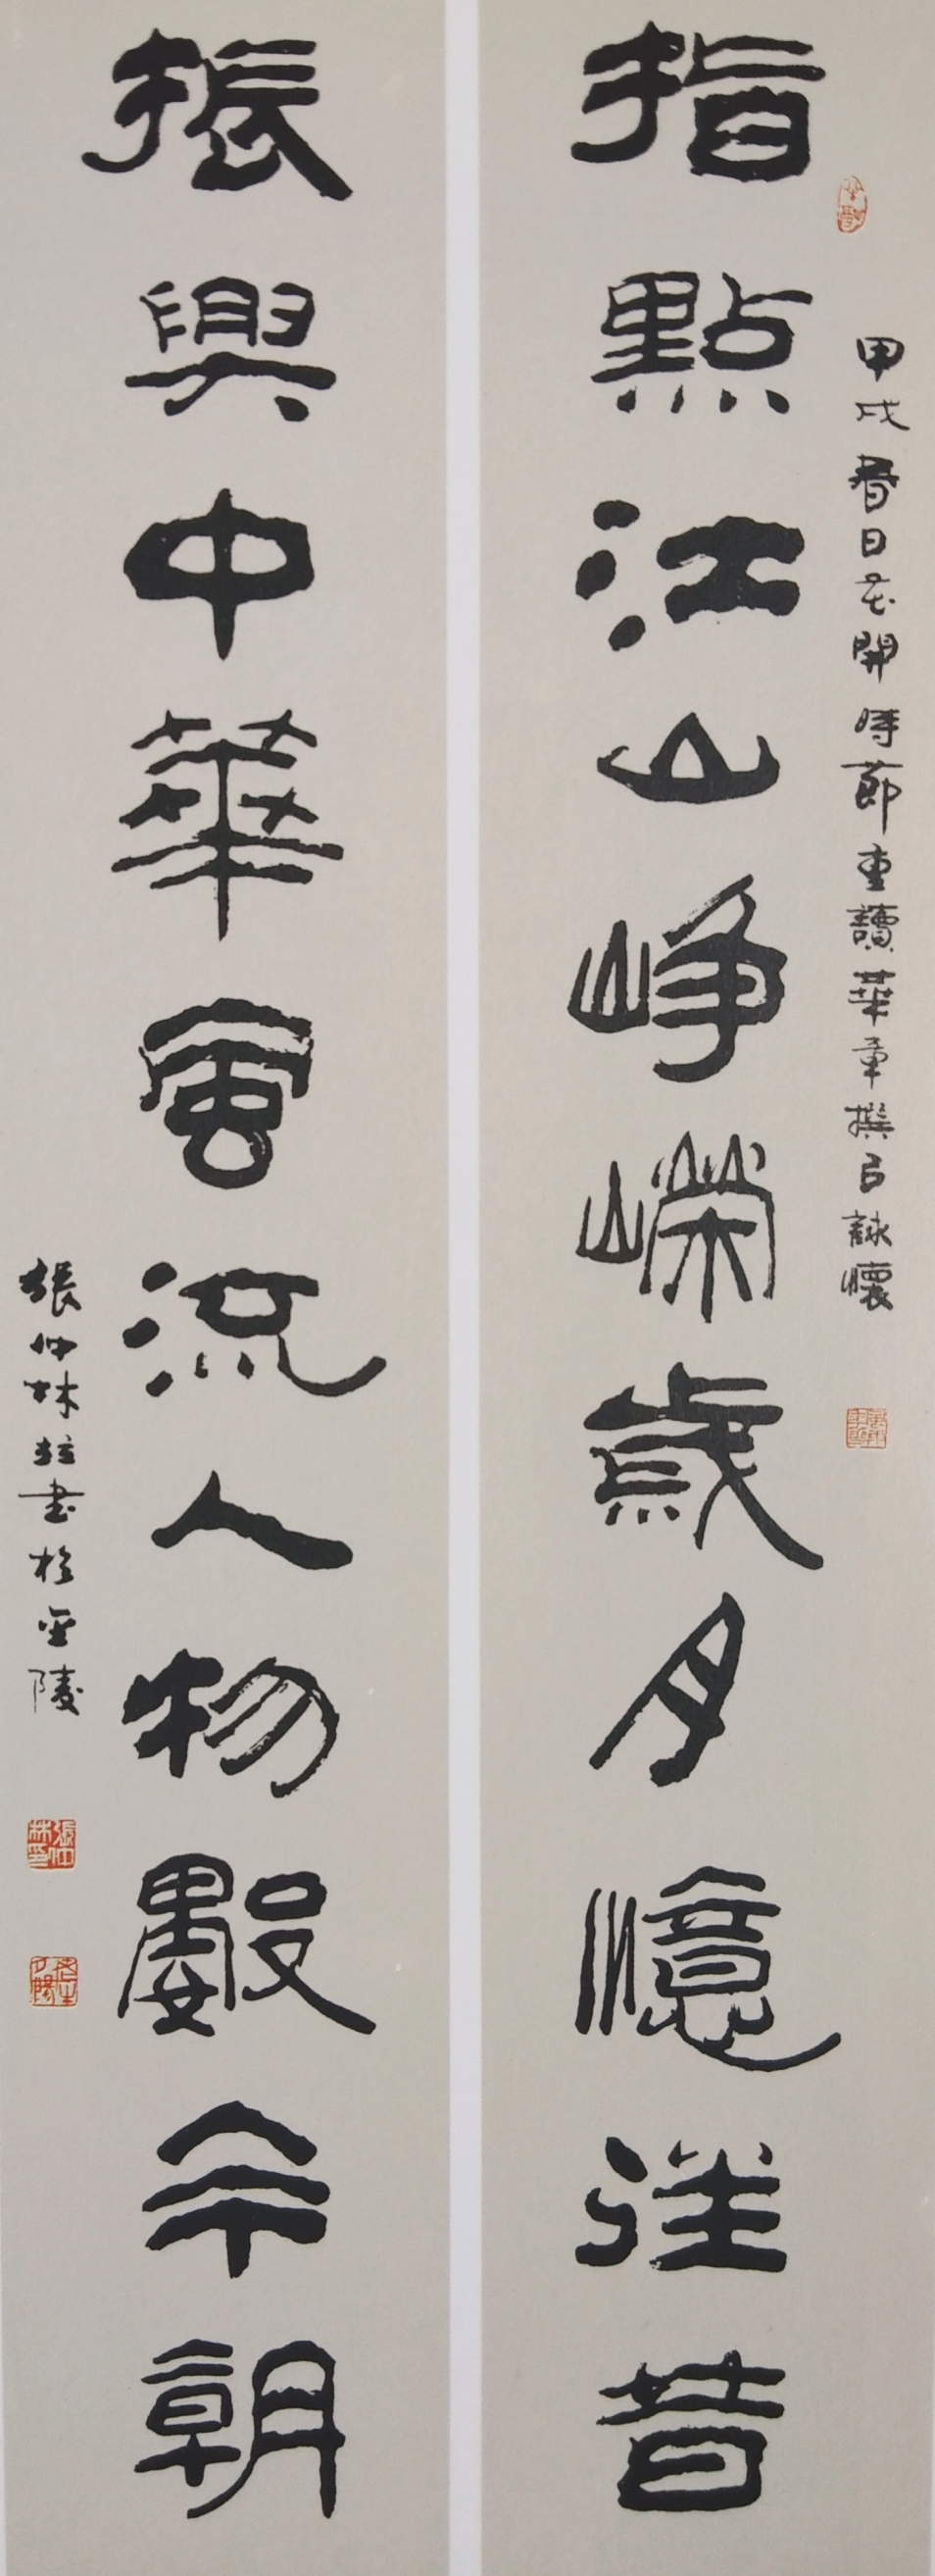 甲戌春日花開時節重讀華章撰以詠懷
指點江山崢嶸歲月憶往昔
振興中華風流人物數今朝
張仲林並書於金陵
張仲林印